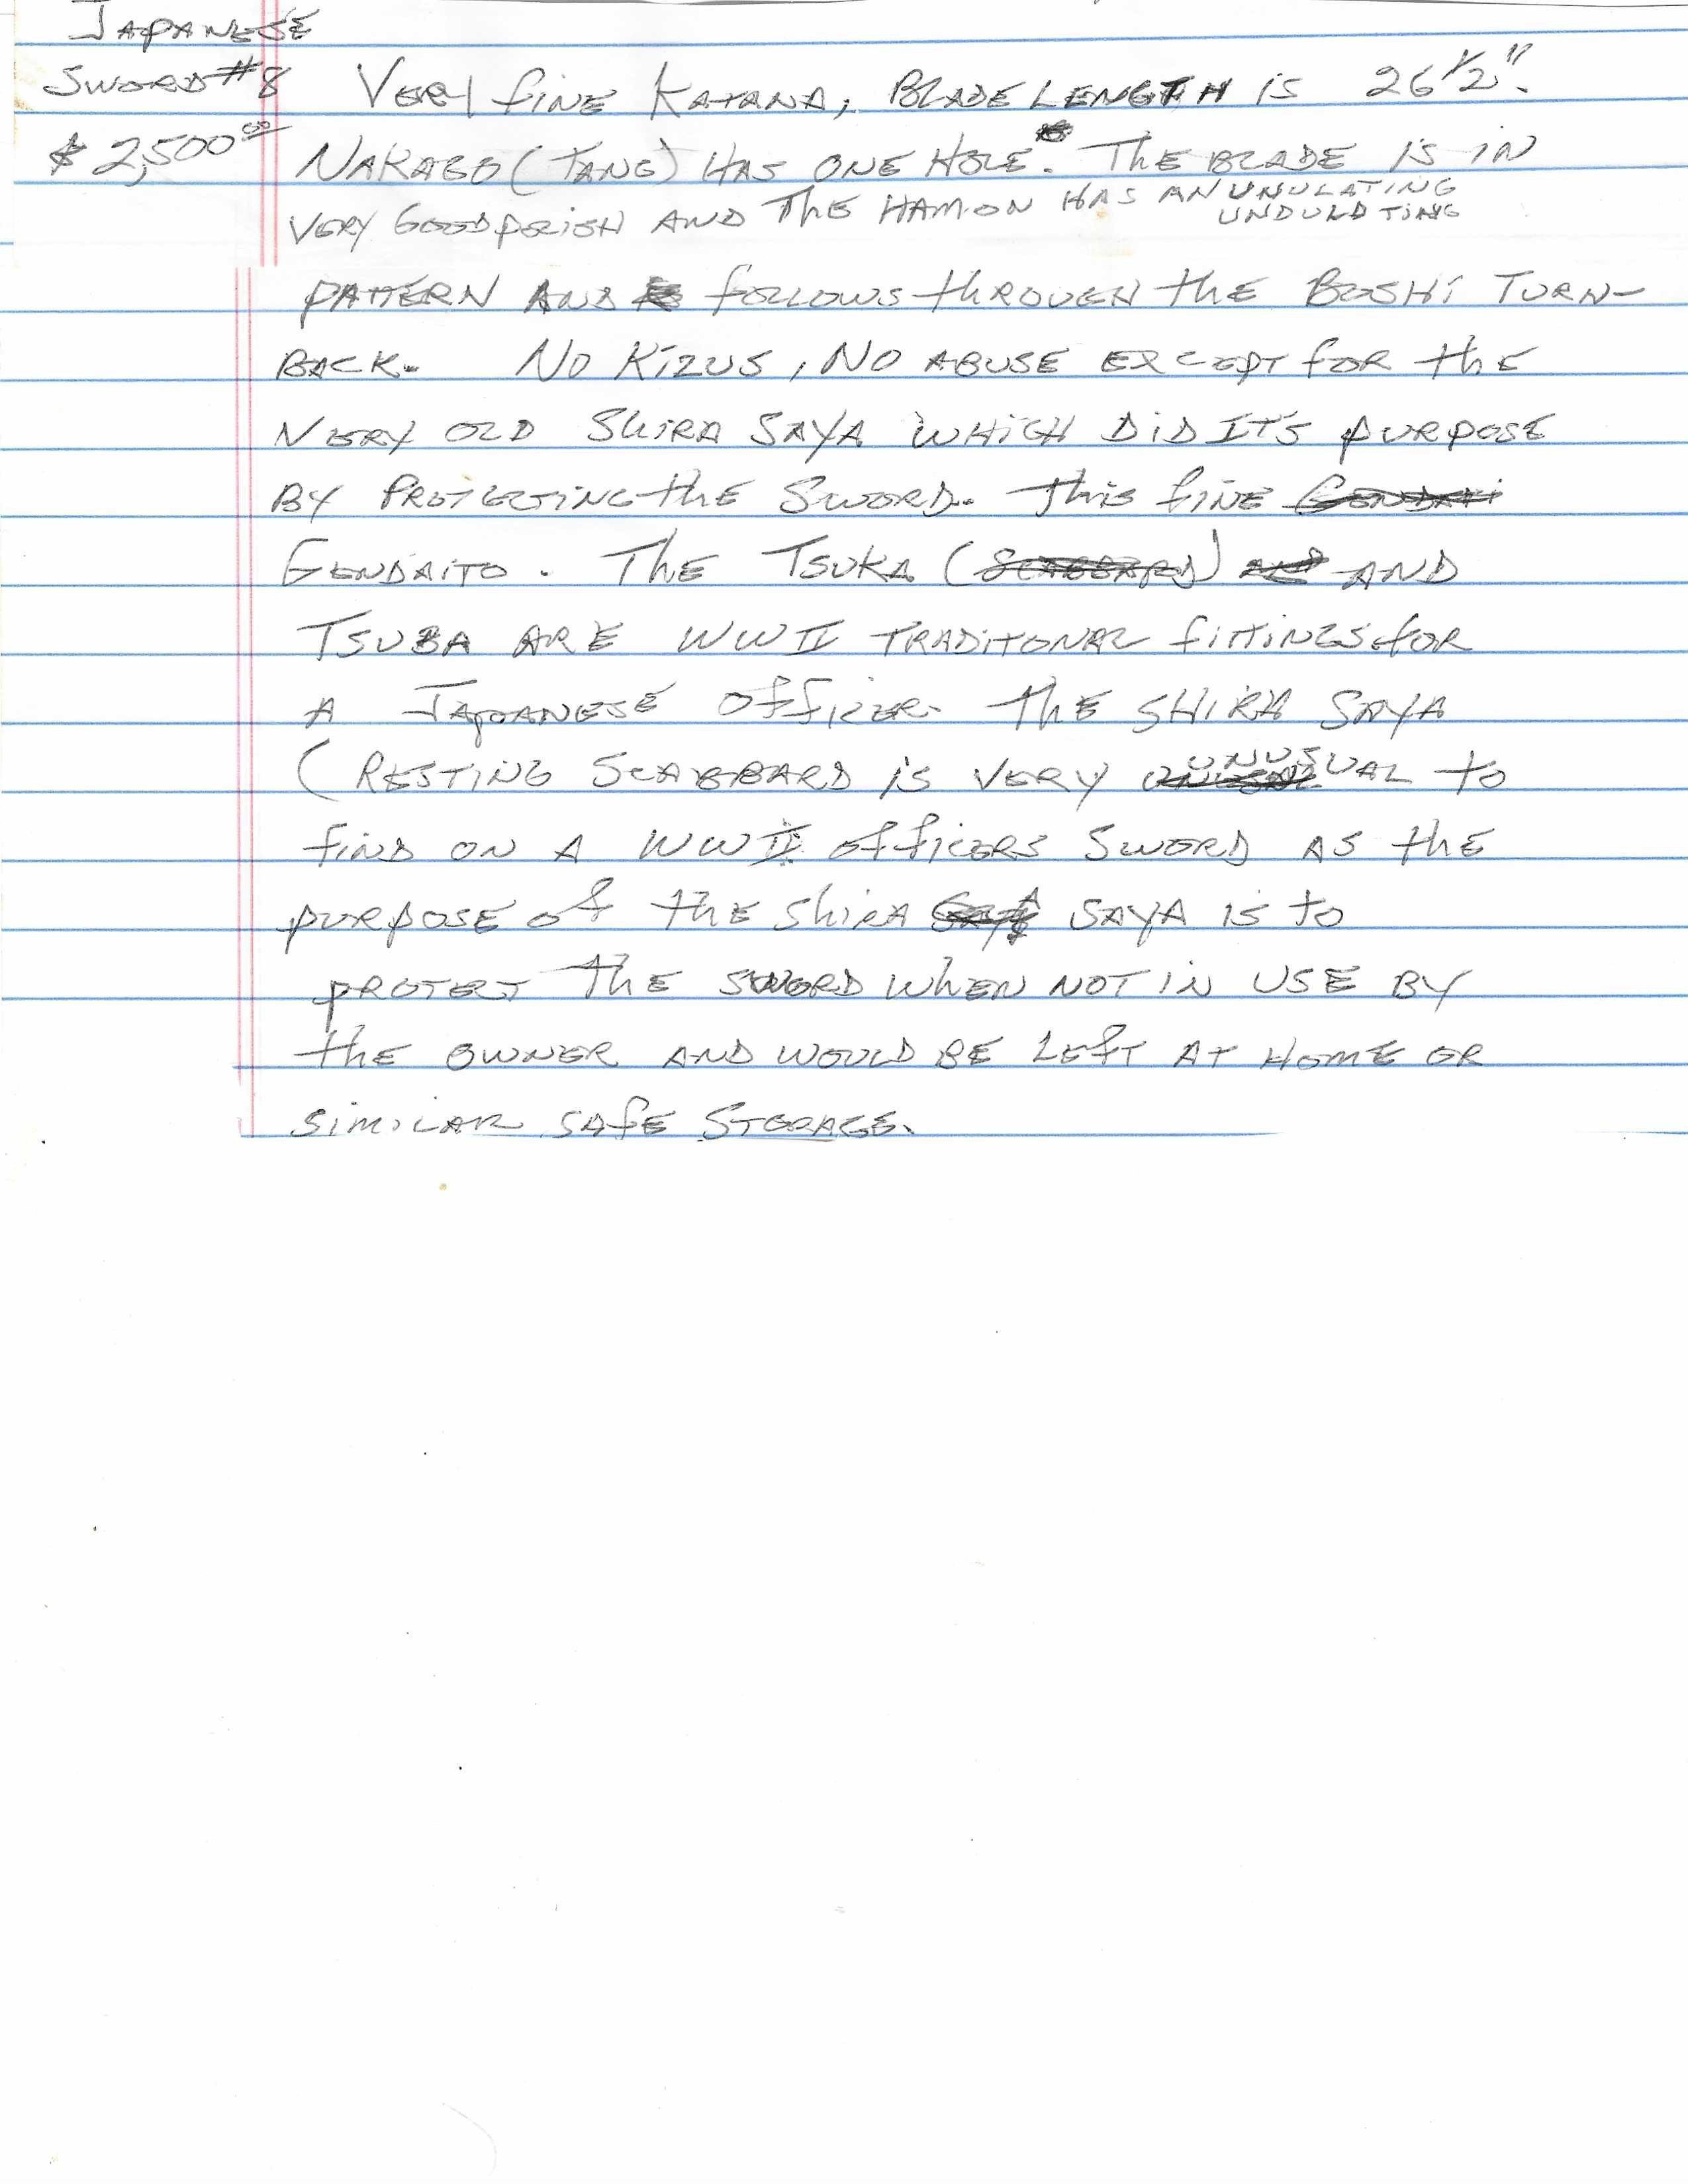 JAPANESE
SWORD #8 VERY fine KATANA, BLADE LENGTH is 26 1/2".
$2,500.00 NAKAGO (TANG) HAS ONE HOLE. The BLADE IS IN
VERY GOOD POLISH AND The HAMON HAS AN UNULATING
UNDULATING
PATTERN AND FOLLOWS THROUGH the BOSHI TURN-
BACK. NO KIZUS, NO ABUSE EXCEPT for the
VERY OLD SHIRA SAYA WHICH DID ITS PURPOSE
BY PROTECTING the SWORD. This fine
GENDAITO. The TSUKA (SCABBARD) AND
TSUBA ARE WWII TRADITONAL fittings for
A JAPANESE OFFICER. The SHIRA SAYA
(RESTING SCABBARD is VERY UNUSUAL to
find ON A WWII officers SWORD AS the
PURPOSE of the shiRA SAYA IS to
PROTECT The SWORD WHEN NOT IN USE BY
the OWNER AND WOULD BE LEFT AT HOME OR
SIMILAR SAFE STORAGE.